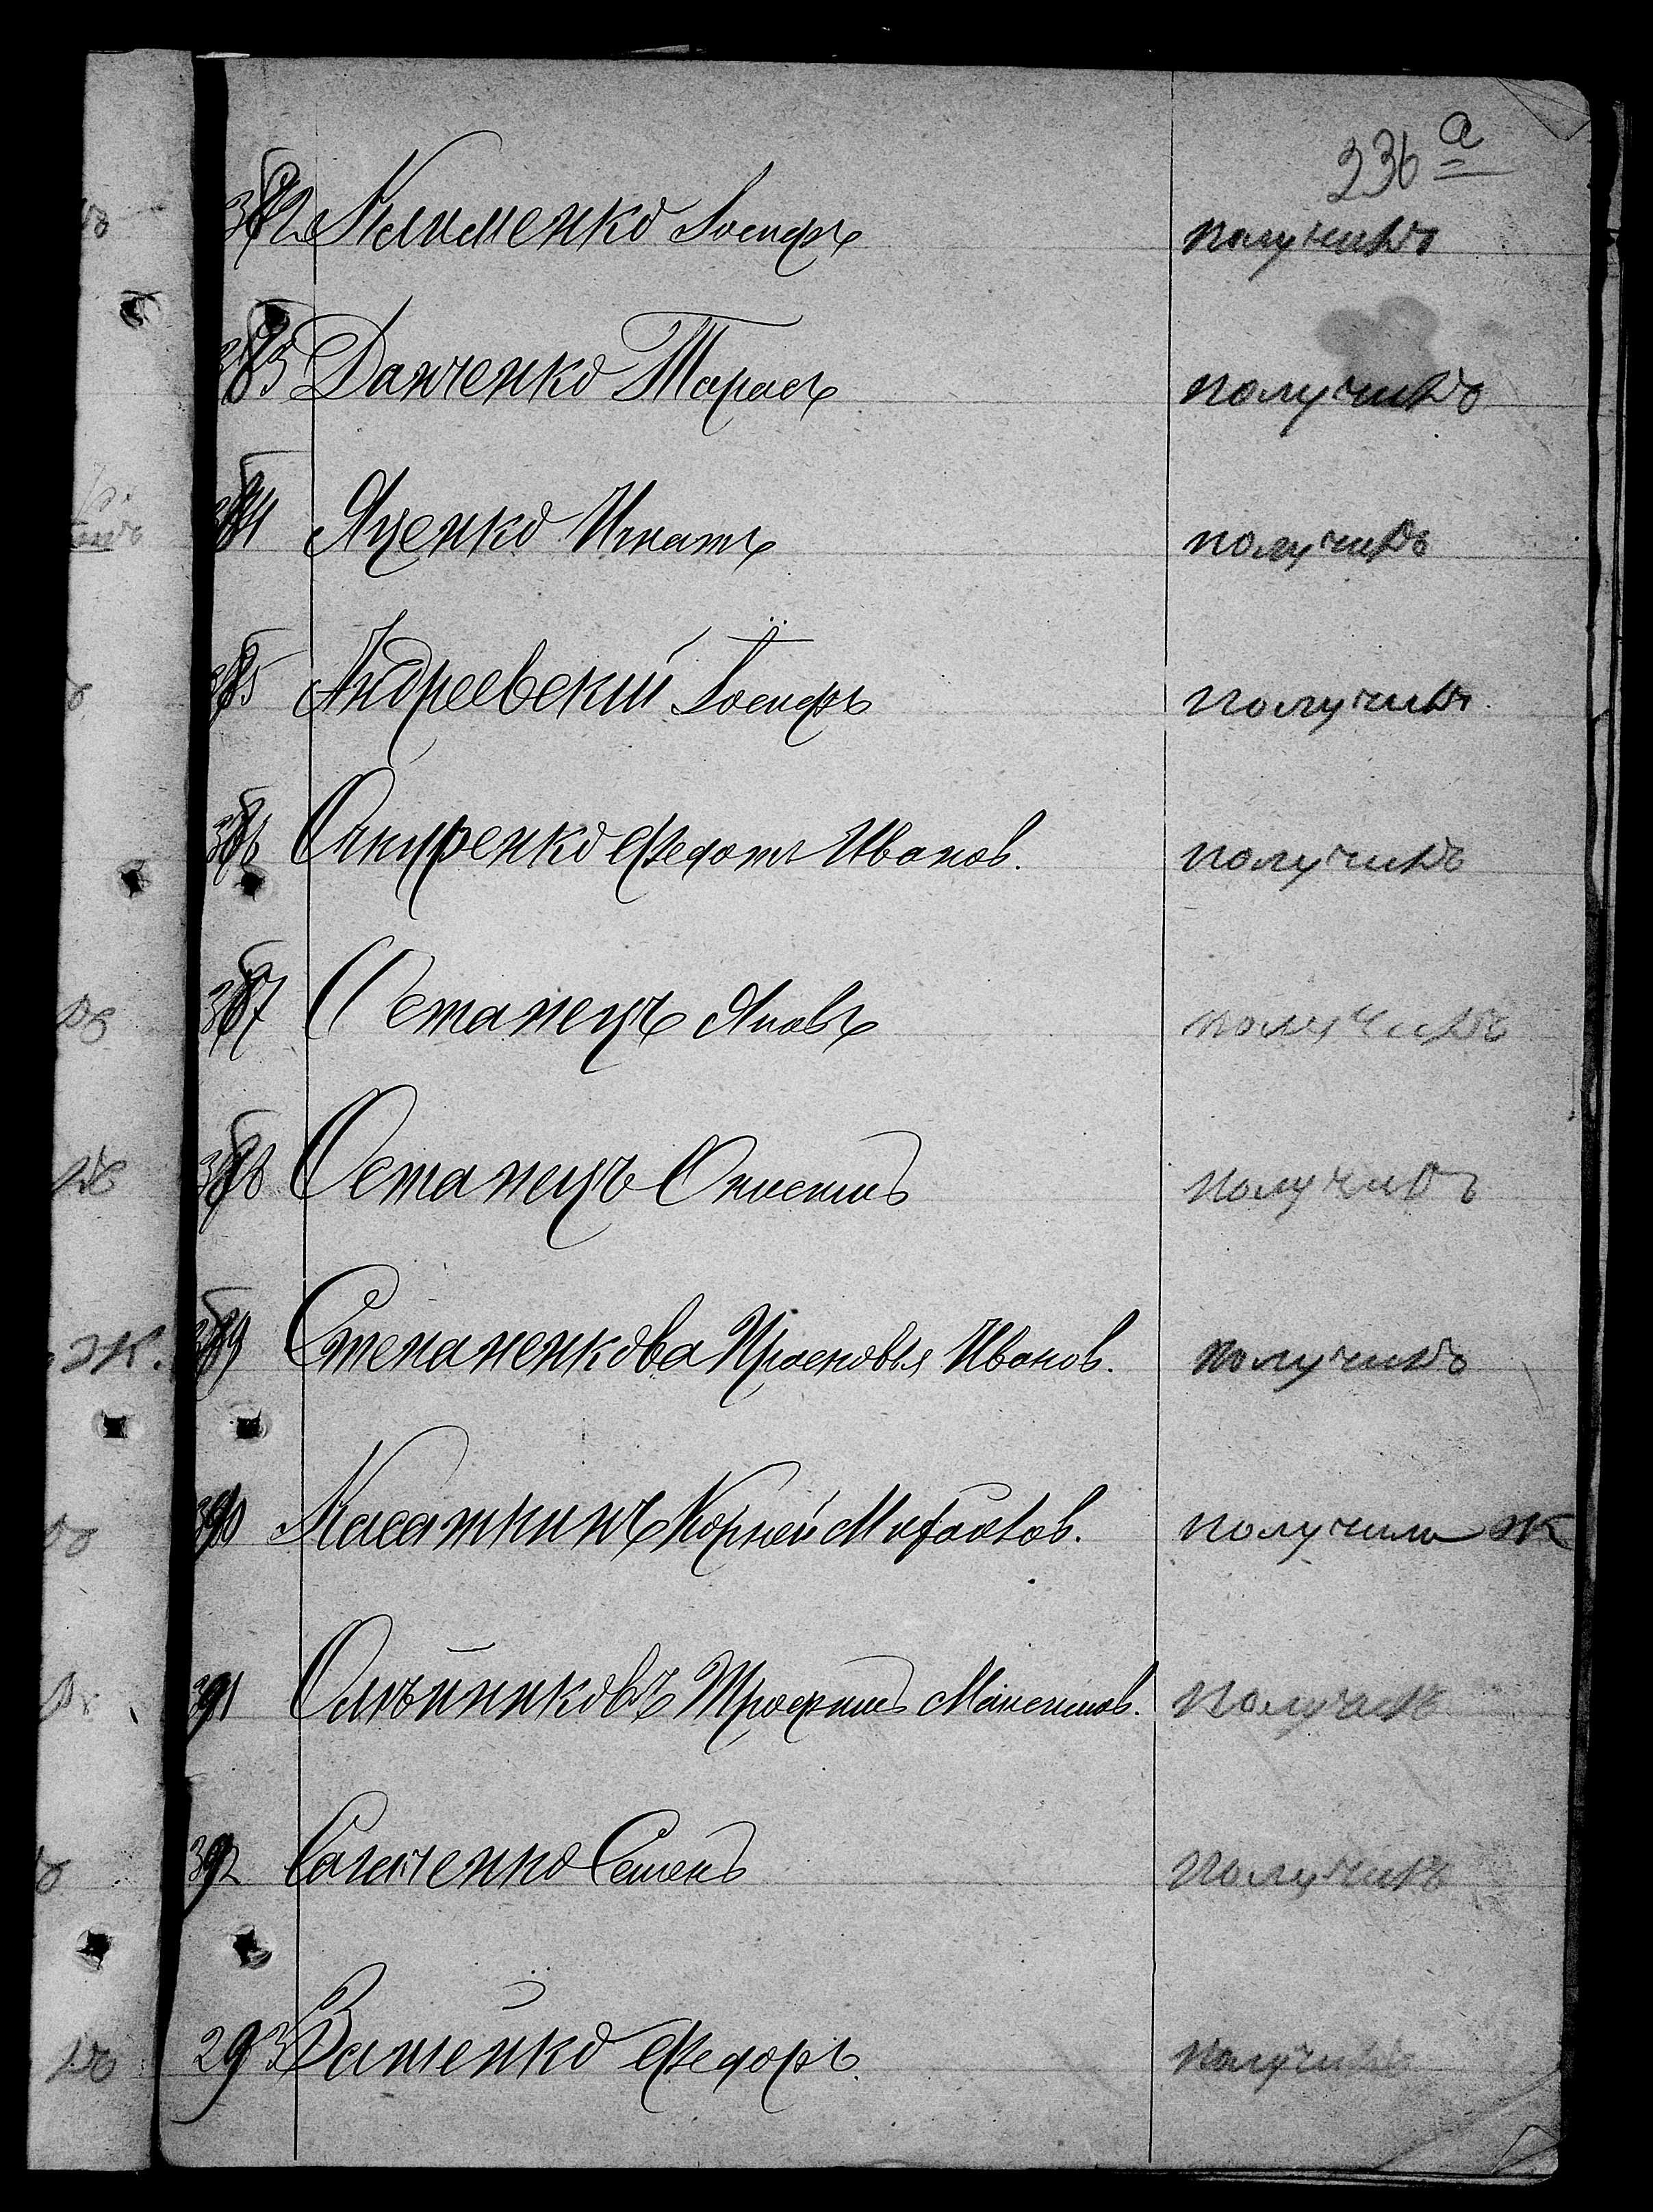 236 а
382 Клименко Іосифъ получилъ
383 Данченко Тарасъ получилъ
384 Яценко Игнатъ получилъ
385 Андреевскій Іосифъ получилъ
386 Федотъ Иванов. получилъ
387 Останецъ Яковъ получилъ
388 Останецъ Онисимъ получилъ
389 Степаненкова Прасковья Иванов. получилъ
390 Касаткинъ Корней Михайлов. получила Ж
391 Олейниковъ Трофимъ Максимов. получилъ
392 Семенъ получилъ
293 Федоръ получилъ